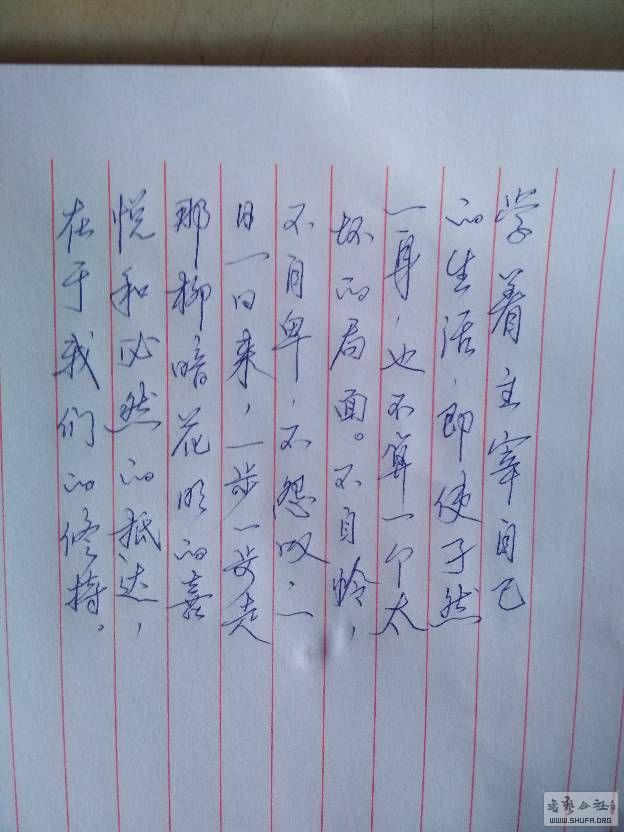 学着主宰自己
的生活，即使孑然
一身，也不算一个太
坏的局面。不自怜，
不自卑，不怨叹，一
日一日来，一步一步走
那柳暗花明的喜
悦和必然的抵达，
在于我们的修持。
WWW.SHUFA.ORG